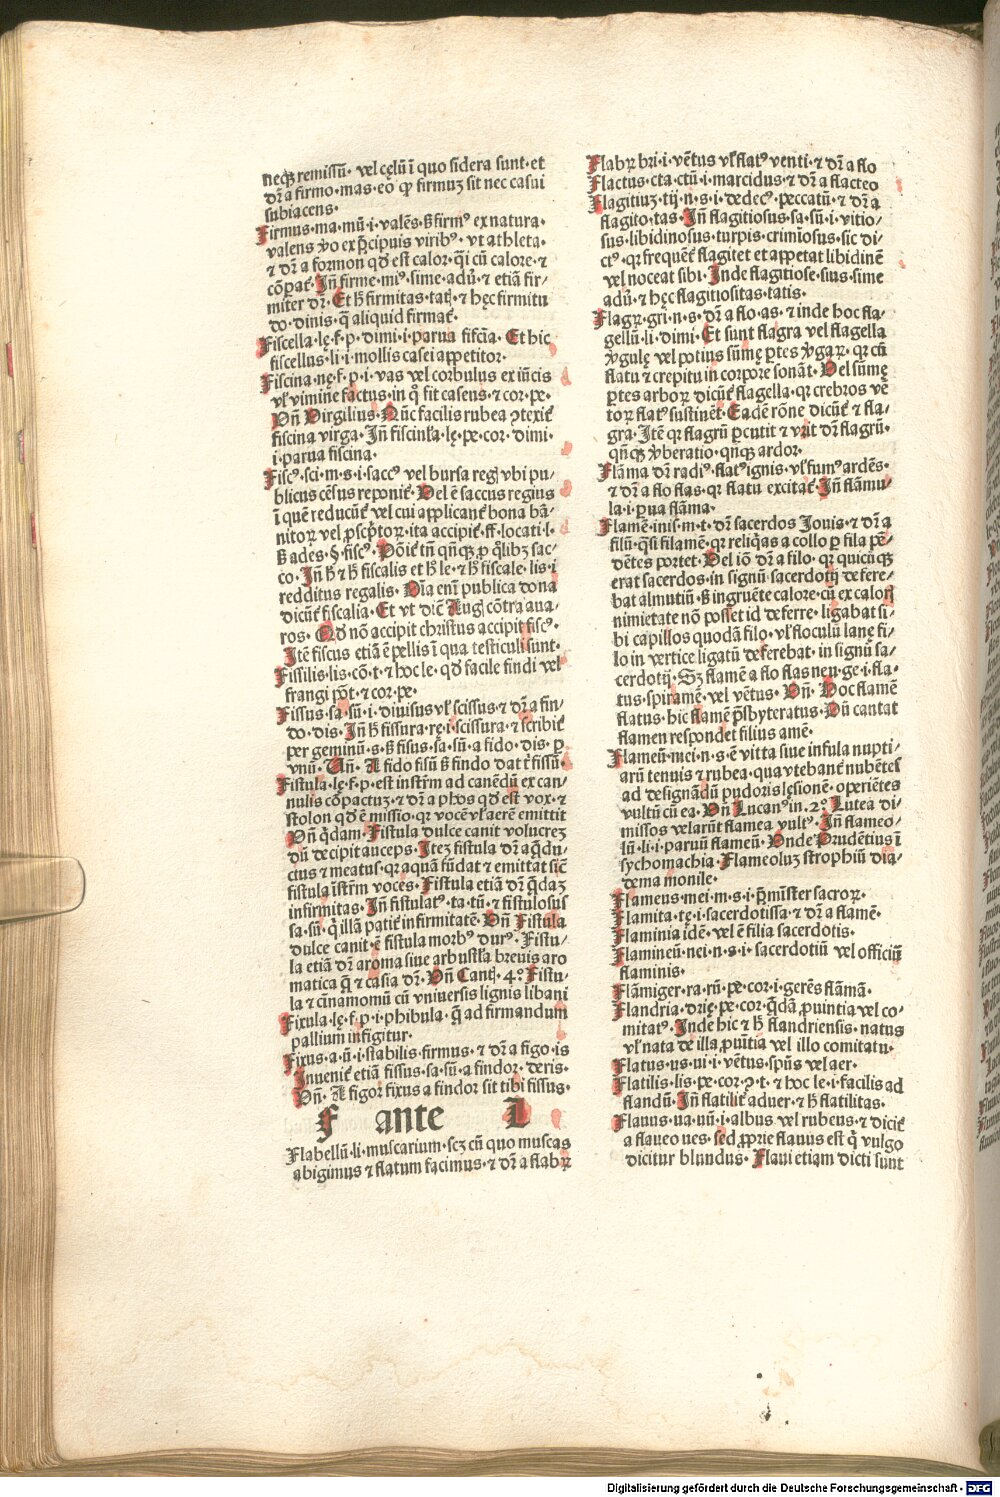 neqꝫ remissū· vel cęlū ī quo sidera sunt· et
dr̄ a firmo·mas·eo ꝙ firmuꝫ sit nec casui
subiacens·
Firmus·ma·mū·i·valēs· ß firmꝰ ex natura·
valens ꝟo ex p̄cipuis viribꝰ· vt athleta·
⁊ dr̄ a formon qd̓ est calor· q̇i cū calore·⁊
cōpat᷒· Jn̄ firme·miꝰ·sime·adū·⁊ etiā fir⸗
miter dr̄· Et h̓ firmitas·tat᷒·⁊ hęc firmitu
do·dinis· q̄ aliquid firmat᷒·
Fiscella·lę·f·p·dimi·i·parua fiscīa· Et hic
fiscellus·li·i·mollis casei appetitor·
Fiscina·nę·f·p·i·vas vel corbulus ex iūcis
vl̓ vimine factus·in q̊ fit casens·⁊ cor·pe·
Vn̄ Virgilius· Nūc facilis rubea ꝯtexit᷒
fiscina virga· Jn̄ fiscinl̓a·lę·pe·cor·dimi·
i·parua fiscina·
Fiscꝰ·sci·m·s·i·saccꝰ vel bursa reg᷒ vbi pu⸗
blicus cēsus reponit᷒· Vel ē saccus regius
ī quē reducūt᷒ vel cui applicant᷒ bona bā⸗
nitoꝝ vel ꝓscp̄toꝝ·ita accipit᷒·ff·locati·l·
ß ades·§·fiscꝰ· Pōit᷒ tn̄ qn̄qꝫ ꝓ q̊libꝫ sac⸗
co· Jn̄ h̓ ⁊ h̓ fiscalis et h̓ le·⁊ h̓ fiscale·lis·i·
redditus regalis· Oīa enī publica bona
dicūt᷒ fiscalia· Et vt dic̄ Aug᷒ cōtra aua⸗
ros· Qd̓ nō accipit christus accipit fiscꝰ·
Jtē fiscus etiā ē pellis ī qua testiculi sunt·
Fissilis·lis·cō·t·⁊ hoc le· qd̓ facile findi vel
frangi pōt·⁊ cor·pe·
Fissus·sa·sū·i·diuisus vl̓ scissus·⁊ dr̄ a fin⸗
do·dis· Jn̄ h̓ fissura·rę·i·scissura·⁊ scribit᷒
per geminū·s·ß fisus·sa·sū·a fido·dis·ꝑ
vnū· Vn̄· A fido fisū ß findo dat t᷒ fissū·
Fistula·lę·f·p·est instrm̄ ad canēdū ex can⸗
nulis cōpactuꝫ·⁊ dr̄ a phos qd̓ est vox·⁊
stolon qd̓ ē missio·qꝛ vocē vl̓ aerē emittit
Vn̄ q̇dam· Fistula dulce canit volucreꝫ
dū decipit auceps· Jteꝫ fistula dr̄ aq̄du⸗
ctus ⁊ meatus·qꝛ aquā fūdat ⁊ emittat sic̄
fistula īstrm̄ voces· Fistula etiā dr̄ q̄daꝫ
infirmitas· Jn̄ fistulatꝰ·ta·tū·⁊ fistulosus
sa·sū·q̇ illā patit᷒ infirmitatē· Vn̄ Fistula
dulce canit·ē fistula morbꝰ durꝰ· Fistu⸗
la etiā dr̄ aroma siue arbustl̓a breuis aro
matica q̄ ⁊ casia dr̄· Vn̄ Cant᷒·4?· Fistu⸗
la ⁊ cīnamomū cū vniuersis lignis libani
Fixula·lę·f·p·i·phibula· q̄ ad firmandum
pallium infigitur·
Fixus·a·ū·i·stabilis·firmus·⁊ dr̄ a figo·is
Jnuenit᷒ etiā fissus·sa·sū·a findor·deris·
Vn̄· A figor fixus a findor sit tibi fissus·
F ante L
Flabellū·li·muscarium·scꝫ cū quo muscas
abigimus ⁊ flatum facimus·⁊ dr̄ a flabꝝ
Flabꝝ bri·i·vētus vl̓ flatꝰ venti·⁊ dr̄ a flo
Flactus·cta·ctū·i·marcidus·⁊ dr̄ a flacteo
Flagitiuꝫ·tij·n·s·i·dedecꝰ·peccatū·⁊ dr̄ a
flagito·tas· Jn̄ flagitiosus·sa·sū·i·vitio⸗
sus·libidinosus·turpis·crimīosus·sic di⸗
ctꝰ·qꝛ frequēt᷒ flagitet et appetat libidinē
vel noceat sibi· Jnde flagitiose·sius·sime
adū·⁊ hęc flagitiositas·tatis·
Flagꝝ·gri·n·s·dr̄ a flo·as·⁊ inde hoc fla⸗
gellū·li·dimi· Et sunt flagra vel flagella
ꝟgulę vel potius sūmę ꝑtes ꝟgaꝝ·qꝛ cū
flatu ⁊ crepitu in corpore sonāt· Vel sūmę
ꝑtes arboꝝ dicūt᷒ flagella·qꝛ crebros vē
toꝝ flatꝰ sustinēt· Eadē rōne dicūt᷒ ⁊ fla⸗
gra· Jtē qꝛ flagrū ꝑcutit ⁊ vrit dr̄ flagrū·
qn̄qꝫ ꝟberatio·qn̄qꝫ ardor·
Flāma dr̄ radiꝰ·flatꝰ ignis·vl̓ fumꝰ ardēs·
⁊ dr̄ a flo flas·qꝛ flatu excitat᷒ Jn̄ flāmu⸗
la·i·ꝑua flāma·
Flamē·inis·m·t·dr̄ sacerdos Jouis·⁊ dr̄ a
filū·q̄si filamē·qꝛ reliq̇as a collo ꝑ fila pē⸗
dētes portet· Vel iō dr̄ a filo·qꝛ quicūqꝫ
erat sacerdos·in signū sacerdotij defere⸗
bat almutiū·ß ingruēte calore·cū ex calor᷒
nimietate nō posset id deferre·ligabat si⸗
bi capillos quodā filo·vl̓ floculū lanę fi⸗
lo in vertice ligatū deferebat·in signū sa⸗
cerdotij· Sꝫ flamē a flo flas neu·ge·i·fla⸗
tus·spiramē·vel vētus· Vn̄· Hoc flamē
flatus·hic flamē p̄sbyteratus· Dū cantat
flamen respondet filius amē·
Flameū·mei·n·s·ē vitta siue infula nupti⸗
arū tenuis ⁊ rubea·qua vtebant᷒ nubētes
ad designādū pudoris lęsionē·operiētes
vultū cū ea· Vn̄ Lucanꝰ in·2°· Lutea di⸗
missos velarūt flamea vultꝰ· Jn̄ flameo⸗
lū·li·i·paruū flameū· Vnde Prudētius ī
sychomachia· Flameoluꝫ strophiū dia⸗
dema monile·
Flameus·mei·m·s·i·p̄mīster sacroꝝ·
Flamita·tę·i·sacerdotissa·⁊ dr̄ a flamē·
Flaminia·idē·vel ē filia sacerdotis·
Flamineū·nei·n·s·i·sacerdotiū vel officiū
flaminis·
Flāmiger·ra·rū·pe·cor·i·gerēs flāmā·
Flandria·drię·pe·cor·q̄dā ꝓuintia vel co⸗
mitatꝰ· Jnde hic ⁊ h̓ flandriensis·natus
vl̓ nata de illa ꝓuītia vel illo comitatu·
Flatus·us·ui·i·vētus·spūs vel aer·
Flatilis·lis·pe·cor·ꝯ·t·⁊ hoc le·i·facilis ad
flandū· Jn̄ flatilit᷒ aduer·⁊ h̓ flatilitas·
Flauus·ua·uū·i·albus vel rubeus·⁊ dicit᷒
a flaueo ues·sed ꝓprie flauus est q̇ vulgo
dicitur blundus· Flaui etiam dicti sunt
Digitalisierung gefördert durch die Deutsche Forschungsgemeinschaft - DFG